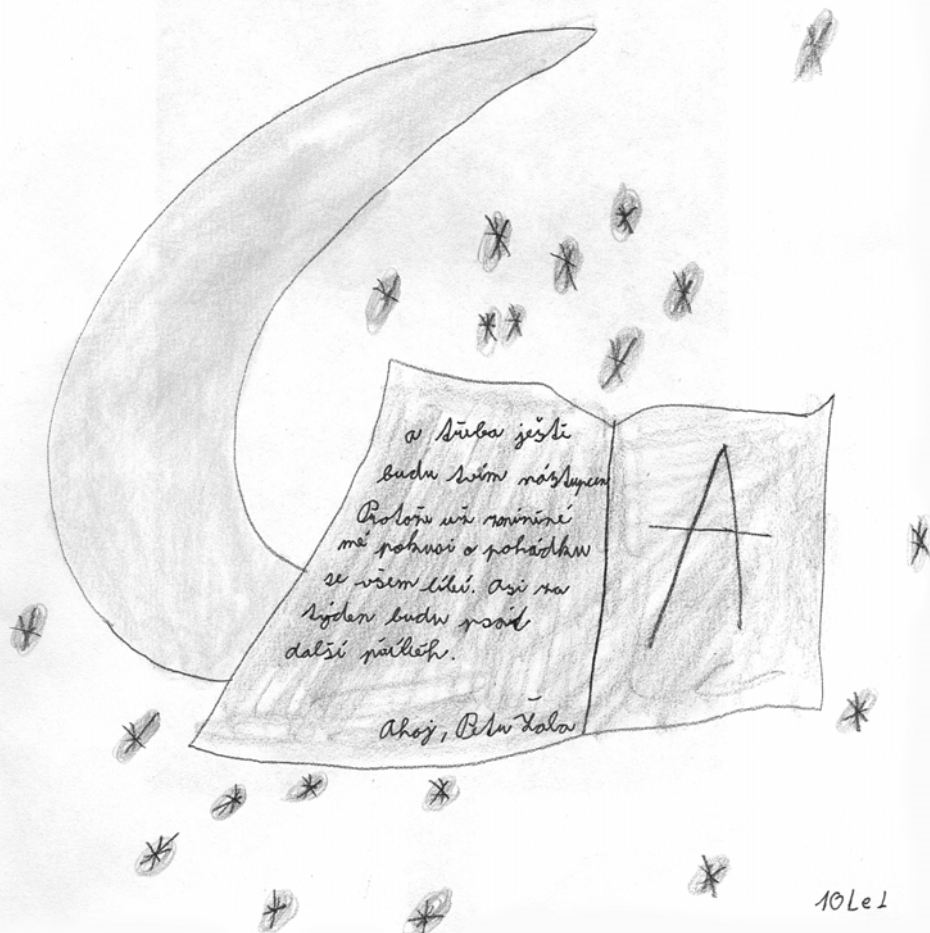 a třeba ještě
budu tvím nástupcem
Protože už zmíněné
mé pokusi o pohádku
se všem líbí. Asi za
týden budu psát
další příběh.
Ahoj, Petr
A
10 Le 1